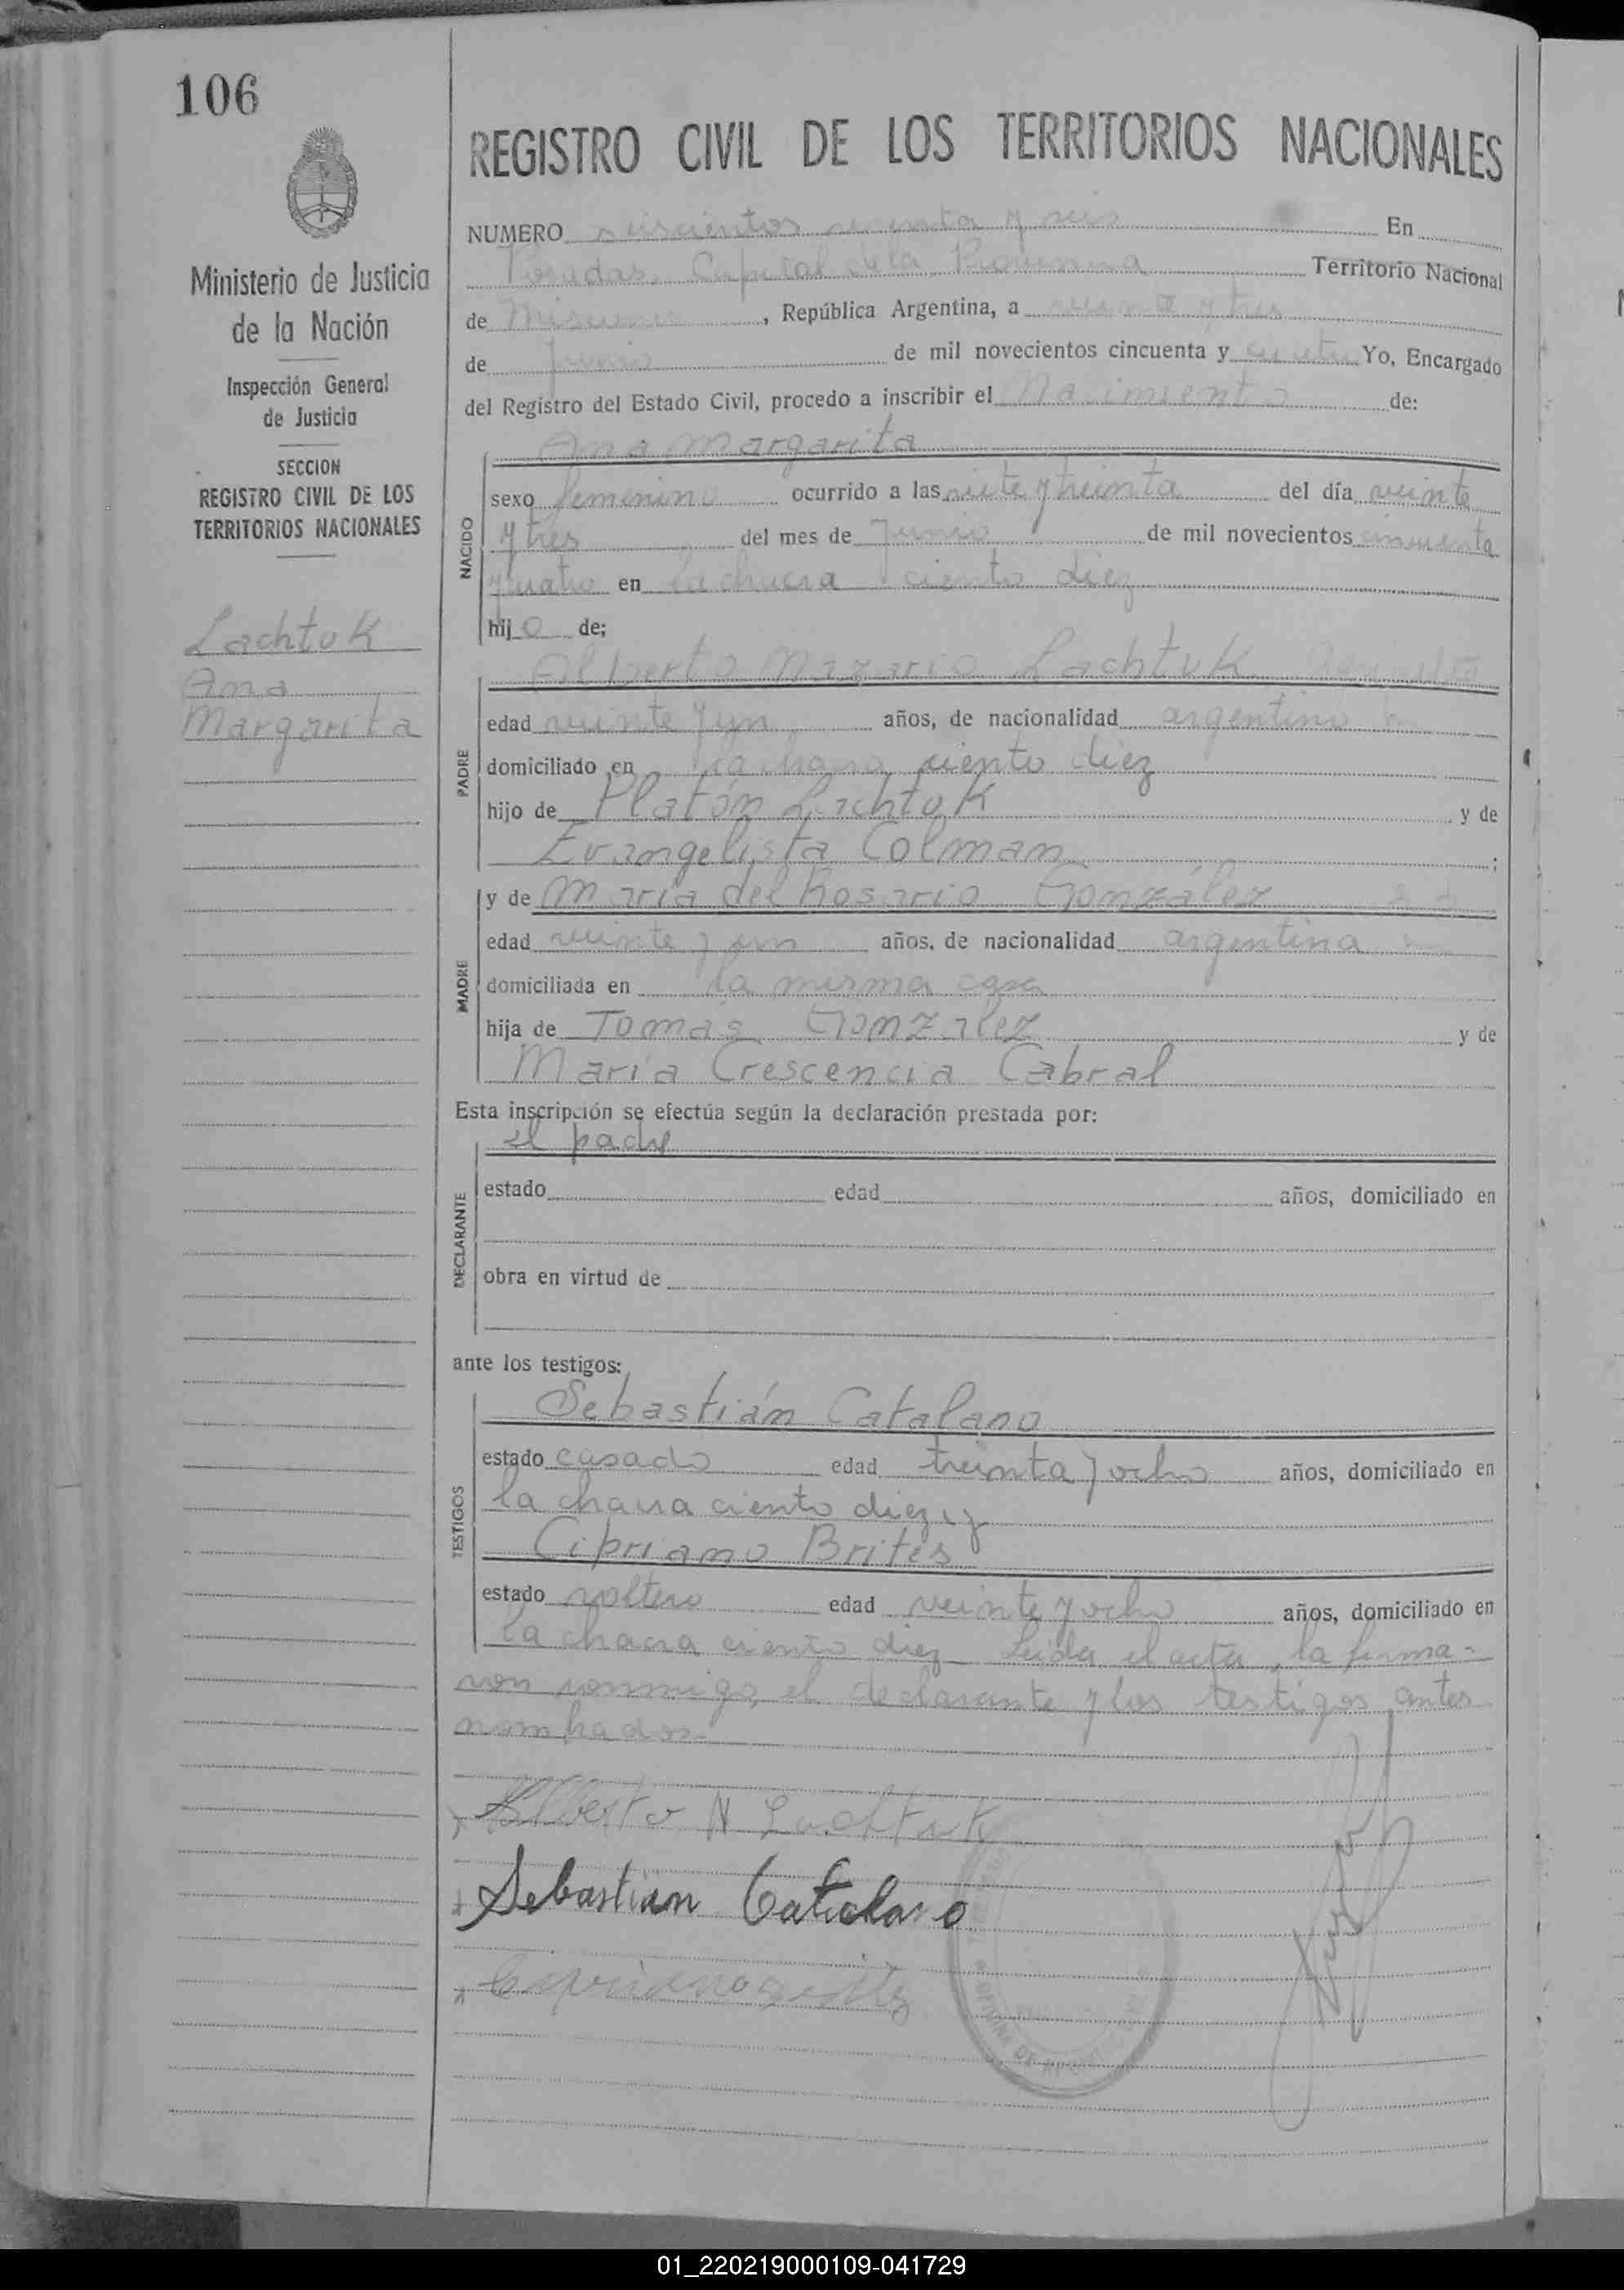 106
REGISTRO CIVIL DE LOS TERRITORIOS NACIONALES
Ministerio de Justicia
de la Nación
Inspección General
de Justicia
SECCION
REGISTRO CIVIL DE LOS
TERRITORIOS NACIONALES
Lachtuk
Ana
Margarita
NUMERO seiscientos y seis En
Posadas, Capital de la Provincia Territorio Nacional
de Misiones, República Argentina, a veinte y tres
de Junio de mil novecientos cincuenta y cuatro Yo, Encargado
del Registro del Estado Civil, procedo a inscribir el Nacimiento de:
NACIDO
Ana Margarita
sexo femenino ocurrido a las siete y treinta del día veinte
y tres del mes de Junio de mil novecientos cincuenta
y cuatro en la chacra ciento diez
hijo de;
PADRE
Alberto Nazario Lachtuk
edad veinte y un años, de nacionalidad argentino
domiciliado en la chacra ciento diez
hijo de Platón Lachtuk y de
Evangelista Colman ;
MADRE
y de María del Rosario González
edad veinte y un años, de nacionalidad argentina
domiciliada en la misma casa
hija de Tomás González y de
María Crescencia Cabral
Esta inscripción se efectúa según la declaración prestada por:
DECLARANTE
el padre
estado edad años, domiciliado en
obra en virtud de
ante los testigos:
TESTIGOS
Sebastián Catalano
estado casado edad treinta y ocho años, domiciliado en
la chacra ciento diez y
Cipriano Brites
estado soltero edad veinte y ocho años, domiciliado en
la chacra ciento diez Leida el acta, la firma-
ron conmigo, el declarante y los testigos antes
nombrados.-
Alberto N Lachtuk
Sebastian Catalano
Cipriano Brites
01_220219000109-041729